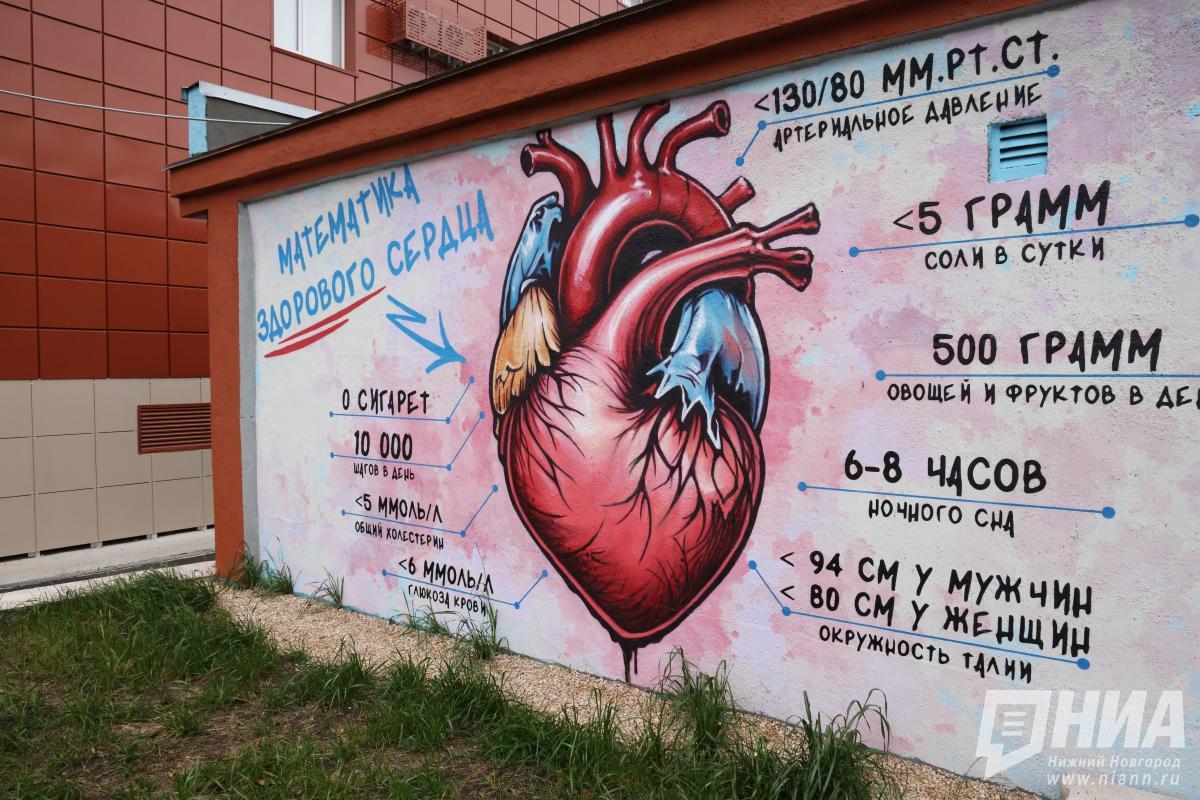 МАТЕМАТИКА
ЗДОРОВОГО СЕРДЦА
0 СИГАРЕТ
10 000
ШАГОВ В ДЕНЬ
<5 ММОЛЬ/Л
ОБЩИЙ ХОЛЕСТЕРИН
<6 ММОЛЬ/Л
ГЛЮКОЗА КРОВИ
<130/80 ММ.РТ.СТ.
АРТЕРИАЛЬНОЕ ДАВЛЕНИЕ
<5 ГРАММ
СОЛИ В СУТКИ
500 ГРАММ
ОВОЩЕЙ И ФРУКТОВ В
6-8 ЧАСОВ
НОЧНОГО СНА
< 94 СМ У МУЖЧИН
< 80 СМ У ЖЕНЩИН
ОКРУЖНОСТЬ ТАЛИИ
НИА
Нижний Новгород
www.niann.ru